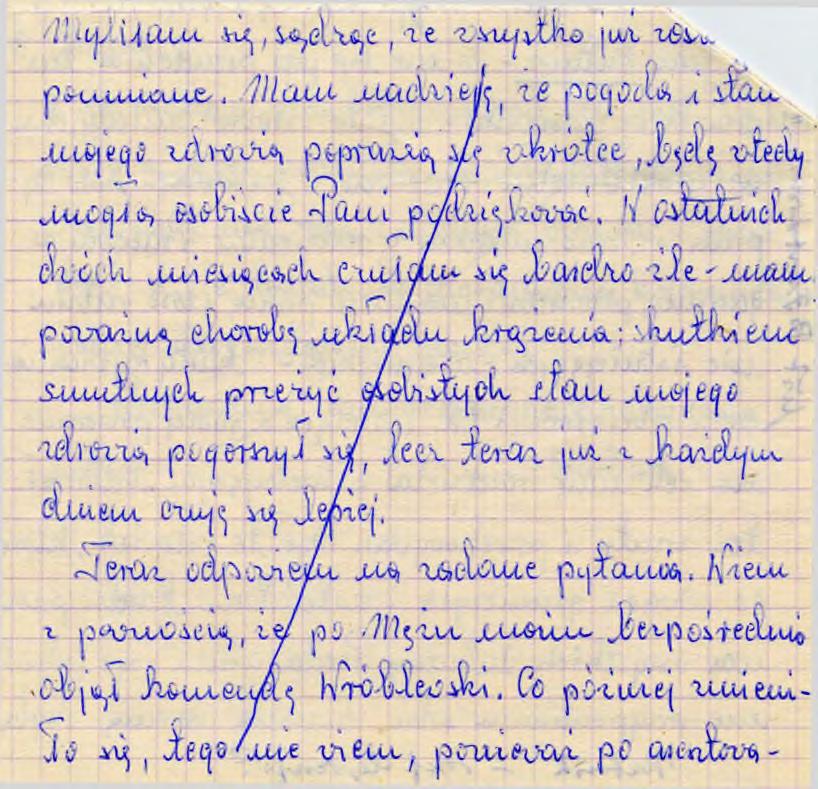 Myliłam się, sądząc, że wszystko już
pomniane. Mam nadzieję, że pogoda i stan
mojego zdrowia poprawią się wkrótce, będę wtedy
mogła osobiście Pani podziękować. W ostatnich
dwóch miesiącach czułam się bardzo źle - mam
poważną chorobę układu krążenia; skutkiem
smutnych przeżyć osobistych stan mojego
zdrowia pogorszył się, lecz teraz już z każdym
dniem czuję się lepiej.
Teraz odpowiem na zadane pytania. Wiem
z pewnością, że po Mężu moim bezpośrednio
objął komendę Wróblewski. Co później zmieni-
ło się, tego nie wiem, ponieważ po aresztowa-